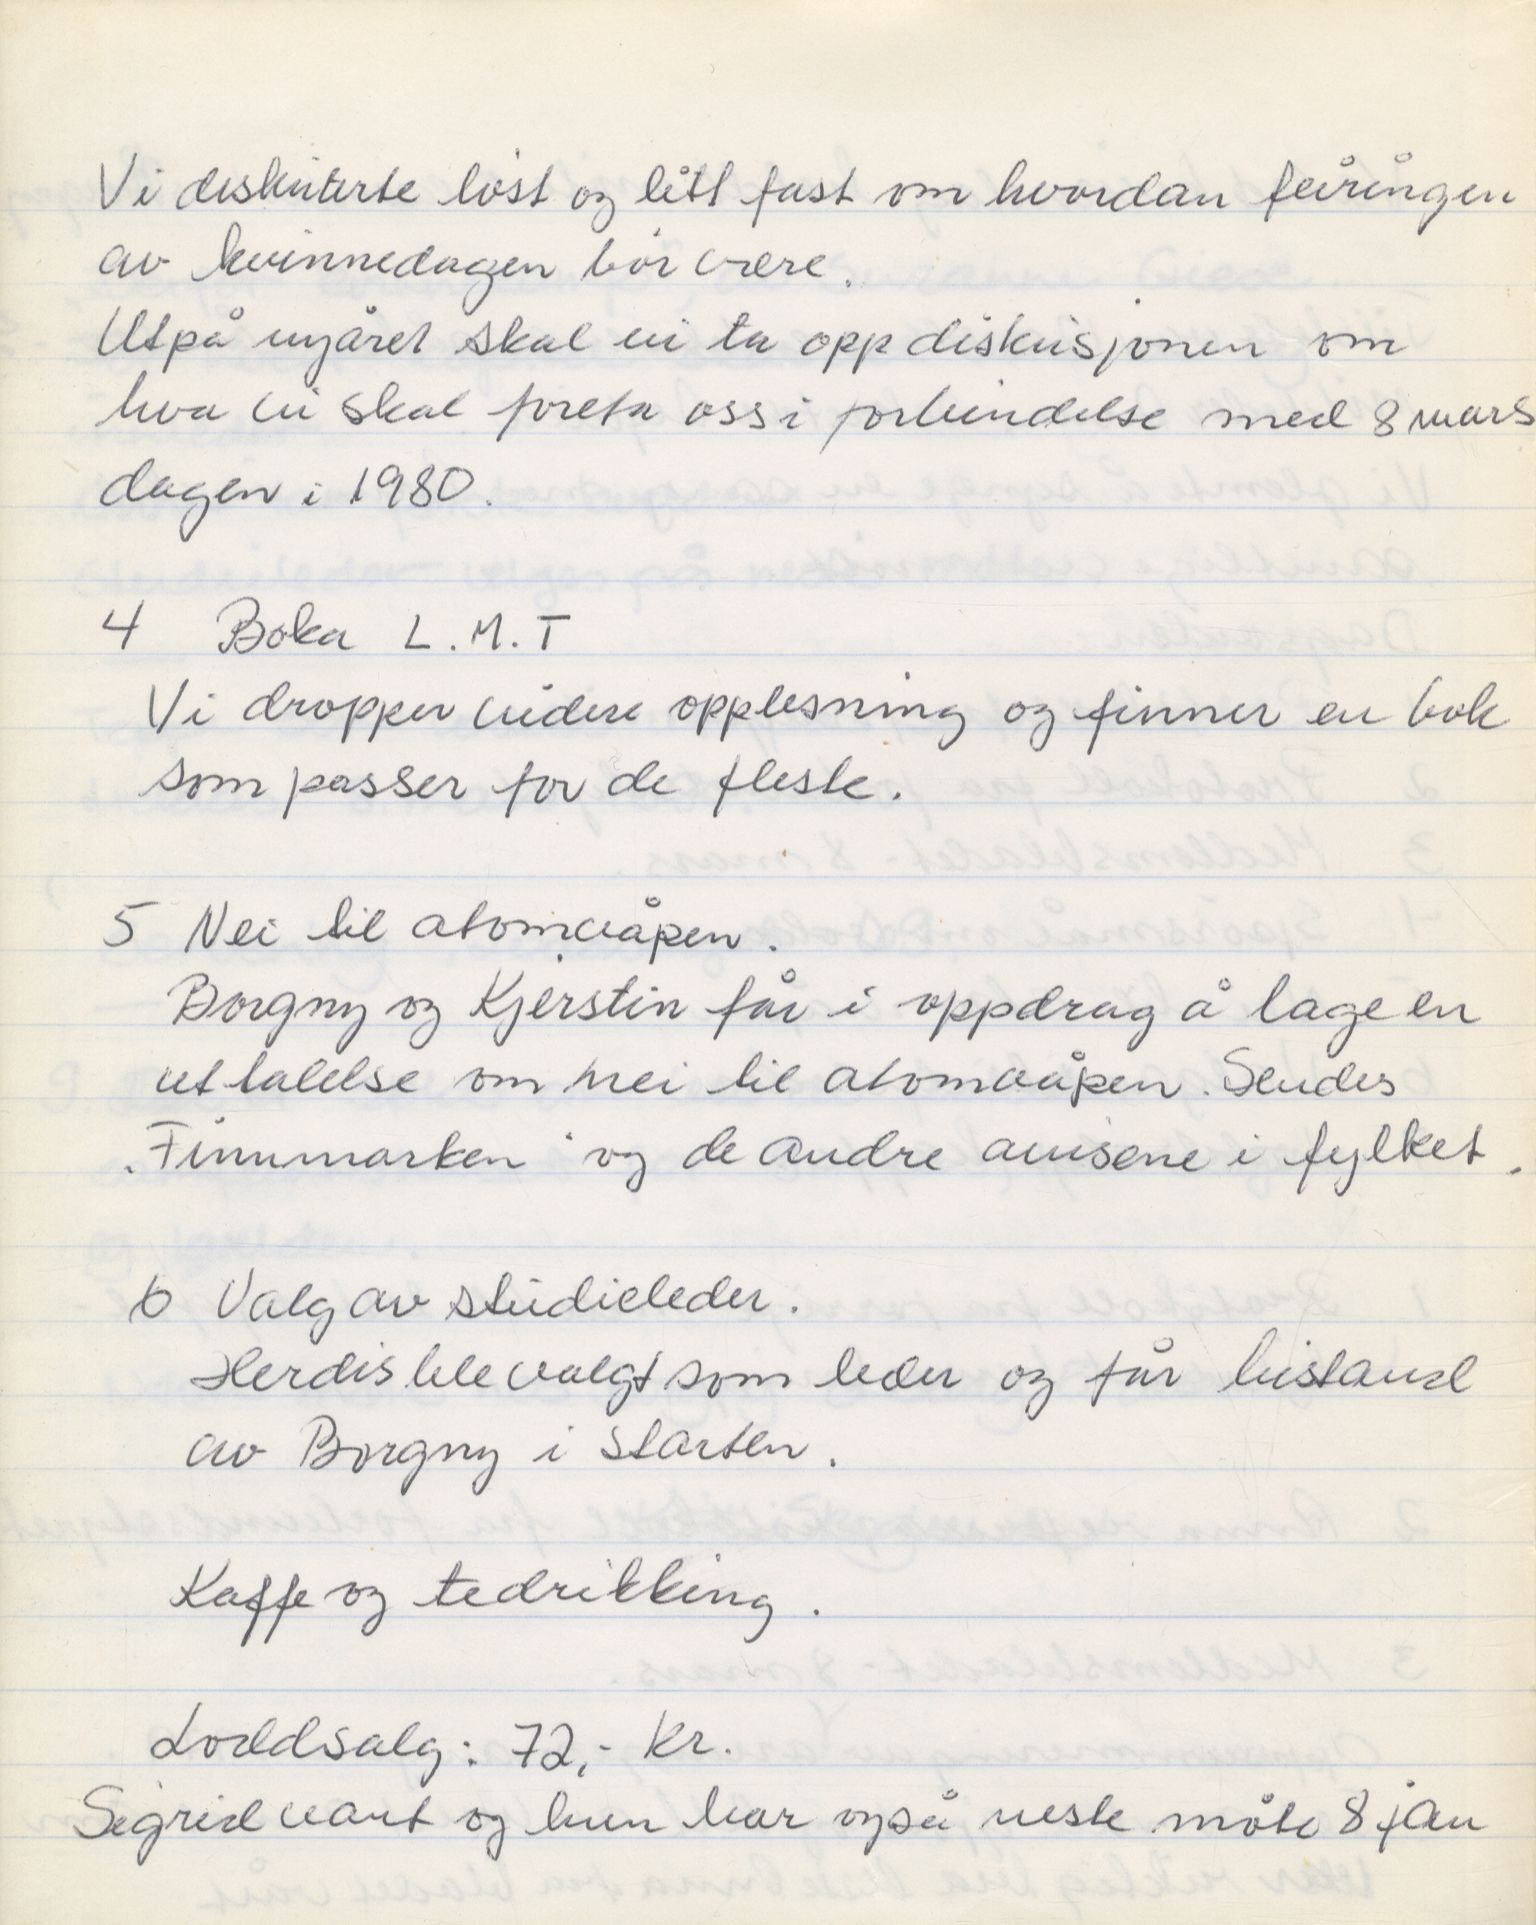 Vi diskuterte løst og litt fast om hvordan feiringen
av kvinnedagen bør være.
Utpå nyåret skal vi ta opp diskusjonen om
hva vi skal foreta oss i forbindelse med 8 mars
dagen i 1980.
4 Boka L.M.T
Vi dropper videre opplesning og finner en bok
som passer for de fleste.
5 Nei til atomvåpen.
Borgny og Kjerstin får i oppdrag å lage en
uttalelse om nei til atomvåpen. Sendes
"Finnmarken" og de andre avisene i fylket.
6 Valg av studieleder.
Herdis ble valgt som leder og får bistand
av Borgny i starten.
Kaffe og tedrikking.
Loddsalg: 72,- kr.
Sigrid vant og hun har også neste møte 8 jan